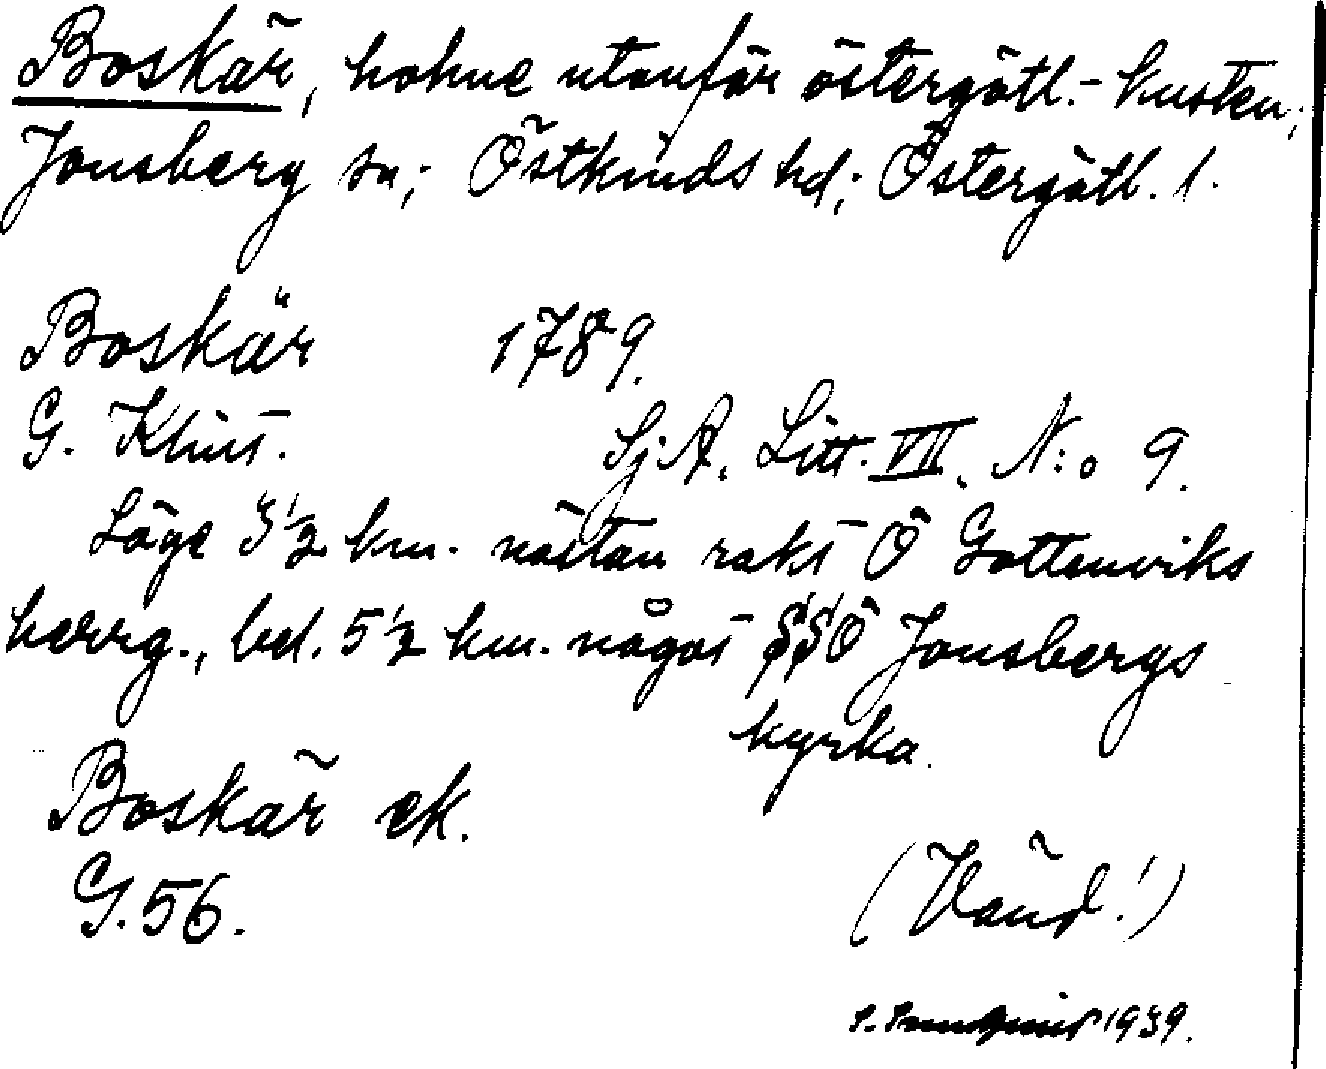 Boskär, holme utanför östergötl.-kusten;
Jonsberg sn; Östkinds hd; Östergötl. l.
Boskär 1789.
G. Klint. Sj.A. Litt. VII. N:o 9.
Läge 3 1/2 km. nästan rakt Ö Gottenviks
herrg., bel. 5 1/2 km. något SSÖ Jonsbergs
kyrka.
Boskär ek.
G. 56.
(Vänd!)
1939.